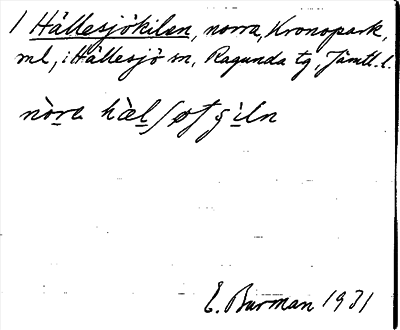 1 Hällesjökilen, norra, Kronopark,
ml, i Hällesjö sn, Ragunda tg, Jämtl. l.
nòra hæ̀lʃøtʃìln
E. Burman 1931